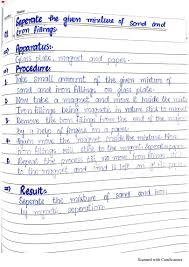 Seperate the given mixture of sand and
iron fillings.
Apparatus:
Glass plate, magnet and paper.
Procedure:
1. Take small amount of the given mixture of
sand and iron fillings on glass plate.
2. Now take a magnet and move it inside the
Iron fillings being magnetic in nature stick to magnet
3. Remove the iron fillings from the end of the magnet
by a help of piece a paper.
4. Again move the magnet inside the mixture
iron fillings will stick to the magnet. Seperate
5. Repeat the process till no more iron fillings
to the magnet and sand is left on
Result:
Seperate the mixture of sand and iron
by
Scanned with CamScanner